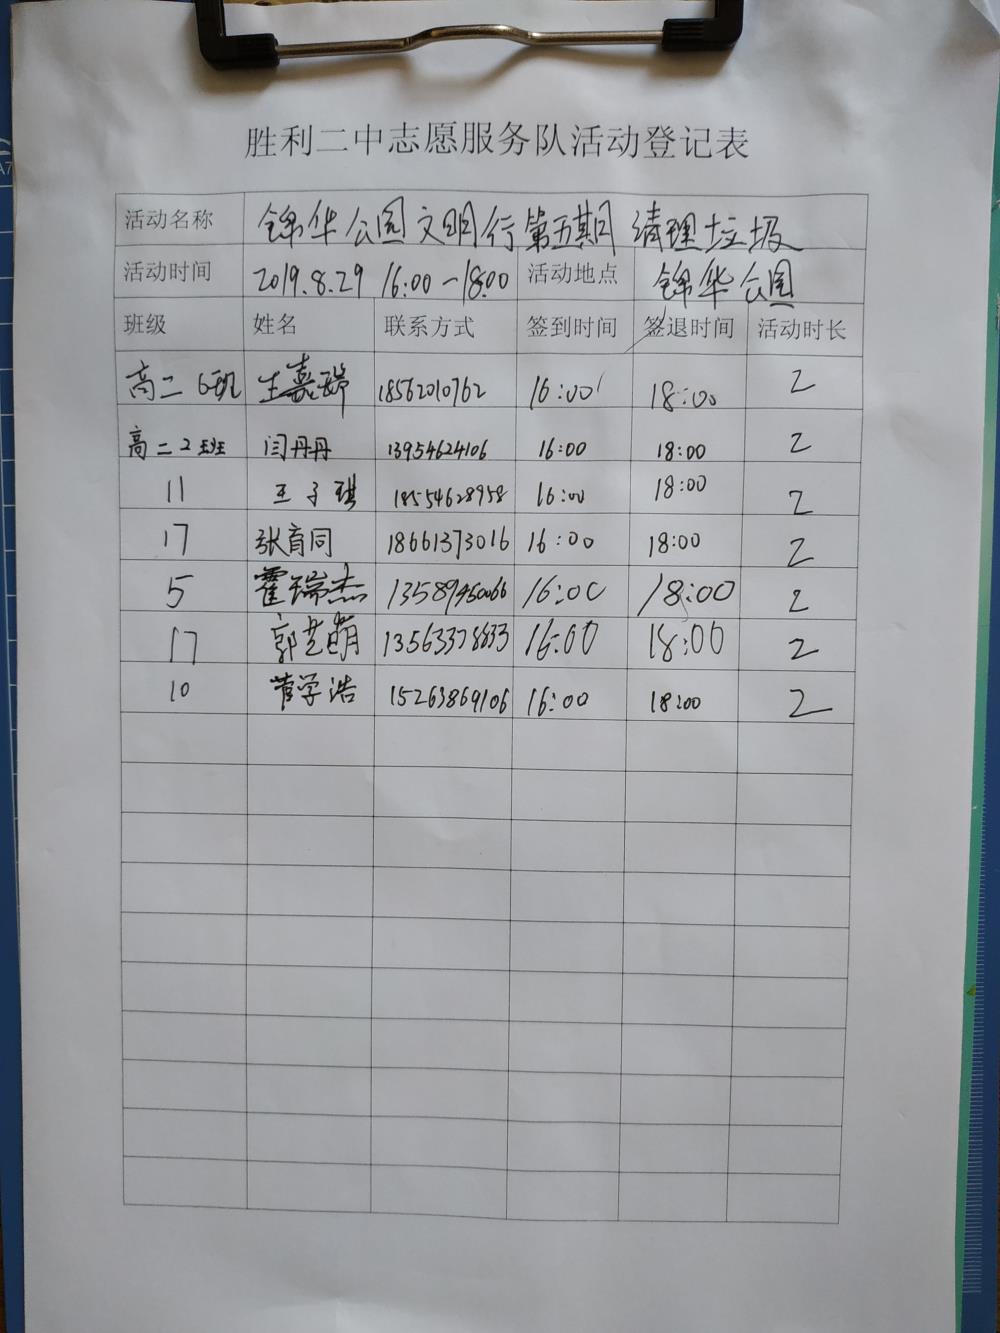 胜利二中志愿服务队活动登记表
活动名称 锦华公园文明行第五期 清理垃圾
活动时间 2019.8.29 16:00-18:00 活动地点 锦华公园
班级 姓名 联系方式 签到时间 签退时间 活动时长
高二6班 王嘉瑞 18562010762 16:00 18:00 2
高二2班 闫丹丹 13954624106 16:00 18:00 2
11 王子琪 18554628958 16:00 18:00 2
17 张育同 18661373016 16:00 18:00 2
5 霍瑞杰 13589450066 16:00 18:00 2
17 郭芝萌 13563378833 16:00 18:00 2
10 菅学浩 15263869106 16:00 18:00 2